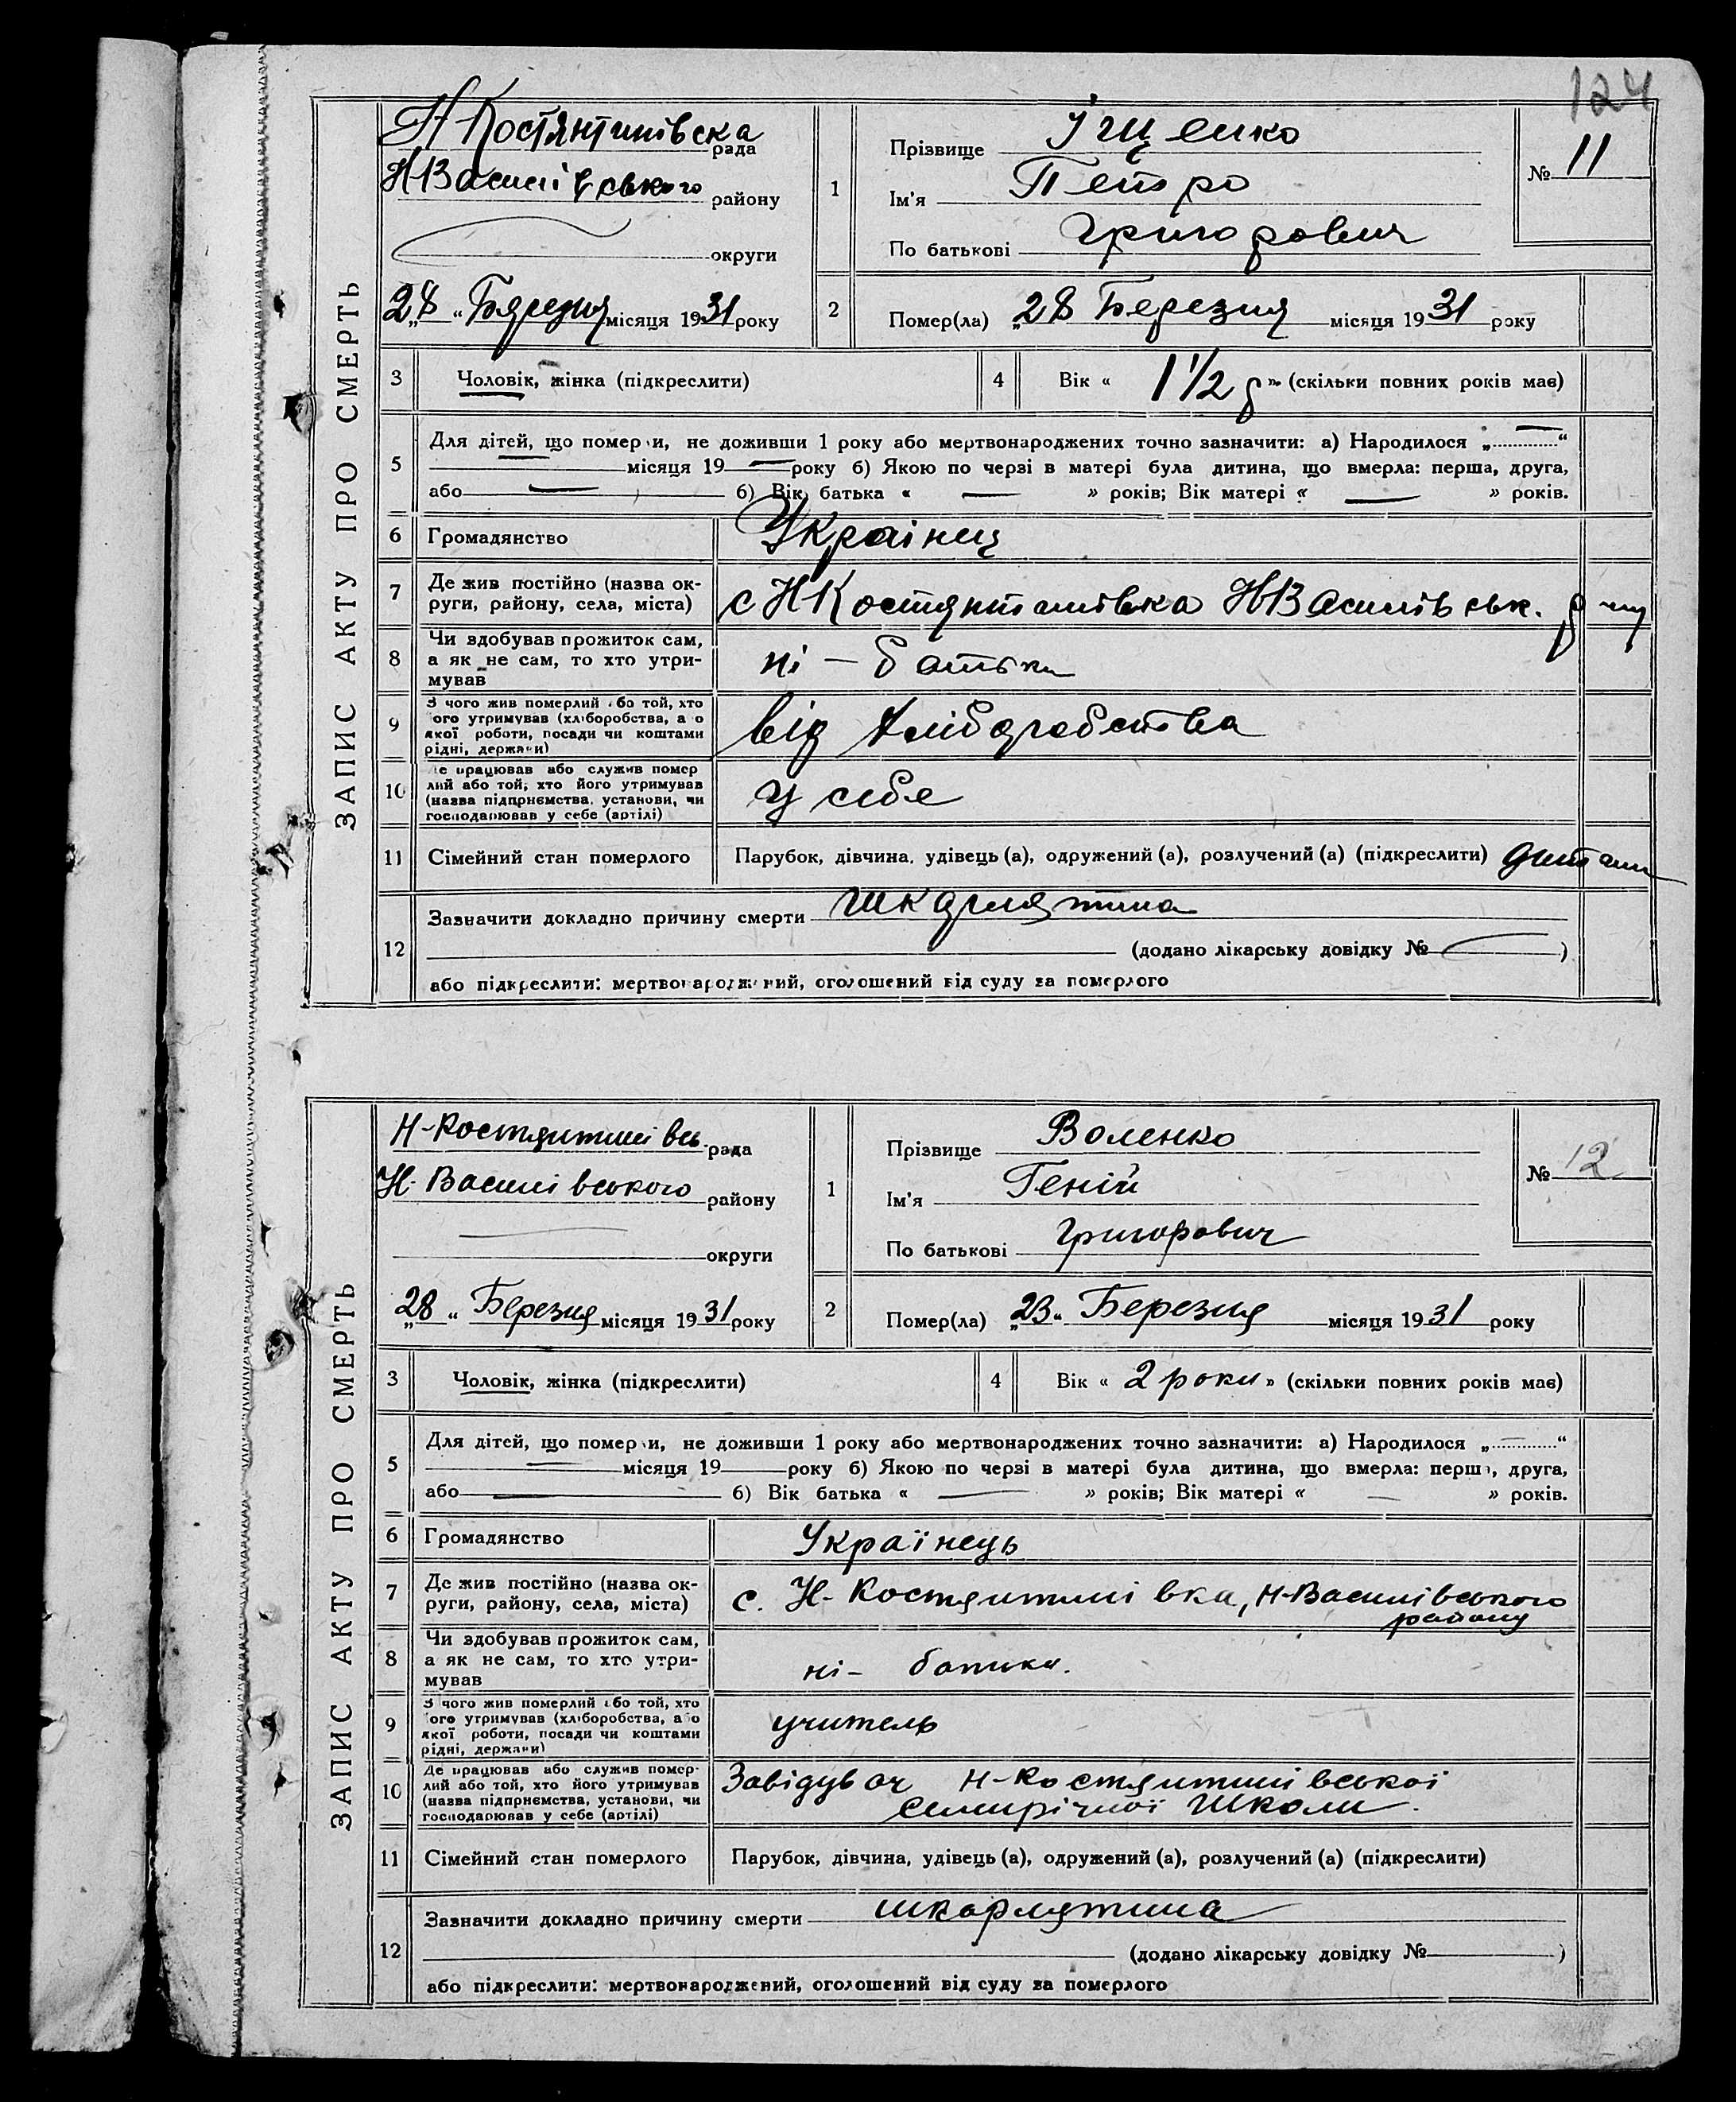 124
ЗАПИС АКТУ ПРО СМЕРТЬ
Н Костянтинівска рада
НВасилівського району
округи
28 „ Березня місяця 1931 року
1
Прізвище Іщенко
Ім'я Петро
По батькові Григорович
№ 11
2
Помер(ла) „28 Березня місяця 1931 року
3 Чоловік, жінка (підкреслити)
4 Вік « 1 1/2 р » (скільки повних років має)
5
Для дітей, що померли, не доживши 1 року або мертвонароджених точно зазначити: а) Народилося „ — “
— місяця 19 — року б) Якою по черзі в матері була дитина, що вмерла: перша, друга,
або — б) Вік батька « — » років; Вік матері « — » років.
6 Громадянство Украінец
7 Де жив постійно (назва ок-
руги, району, села, міста) с НКостянтинівка НВасилівськ. р-ну
8 Чи здобував прожиток сам,
а як не сам, то хто утри-
мував ні — батьки
9 З чого жив померлий або той, хто
його утримував (хліборобства, або
якої роботи, посади чи коштами
рідні, держави) від хліборобства
10 Де працював або служив помер
лий або той, хто його утримував
(назва підприємства, установи, чи
господарював у себе (артілі) у себе
11 Сімейний стан померлого Парубок, дівчина, удівець (а), одружений (а), розлучений (а) (підкреслити) дитина
12
Зазначити докладно причину смерти шкарлятина
(додано лікарську довідку № — )
або підкреслити: мертвонароджений, оголошений від суду за померлого
ЗАПИС АКТУ ПРО СМЕРТЬ
Н-Костянтинівсь. рада
Н-Василівського району
округи
„28“ Березня місяця 1931 року
1
Прізвище Воленко
Ім'я Геній
По батькові Григорович
№ 12
2
Помер(ла) „23“ Березня місяця 1931 року
3 Чоловік, жінка (підкреслити)
4 Вік « 2 роки » (скільки повних років має)
5
Для дітей, що померли, не доживши 1 року або мертвонароджених точно зазначити: а) Народилося „ — “
— місяця 19 року б) Якою по черзі в матері була дитина, що вмерла: перша, друга,
або — б) Вік батька « — » років; Вік матері « — » років.
6 Громадянство Українець
7 Де жив постійно (назва ок-
руги, району, села, міста) с. Н-Костянтинівка, Н-Василівського
району
8 Чи здобував прожиток сам,
а як не сам, то хто утри-
мував ні – батьки.
9 З чого жив померлий або той, хто
його утримував (хліборобства, або
якої роботи, посади чи коштами
рідні, держави) учитель
10 Де працював або служив помер-
лий або той, хто його утримував
(назва підприємства, установи, чи
господарював у себе (артілі) Завідувач Н-Костянтинівської
семирічної школи.
11 Сімейний стан померлого Парубок, дівчина, удівець (а), одружений (а), розлучений (а) (підкреслити)
12
Зазначити докладно причину смерти шкарлятина
(додано лікарську довідку № )
або підкреслити: мертвонароджений, оголошений від суду за померлого